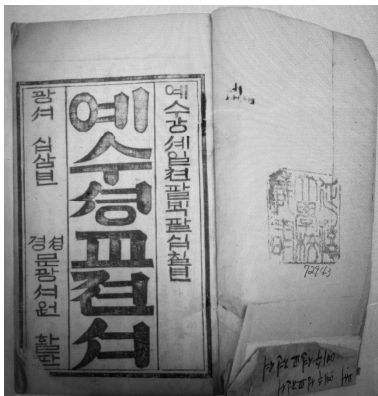 예수강셰일쳔팔ᄇᆡᆨ팔십칠년
예수셩교젼셔
광셔 십삼년
셩경 문광셔원 활판
72943